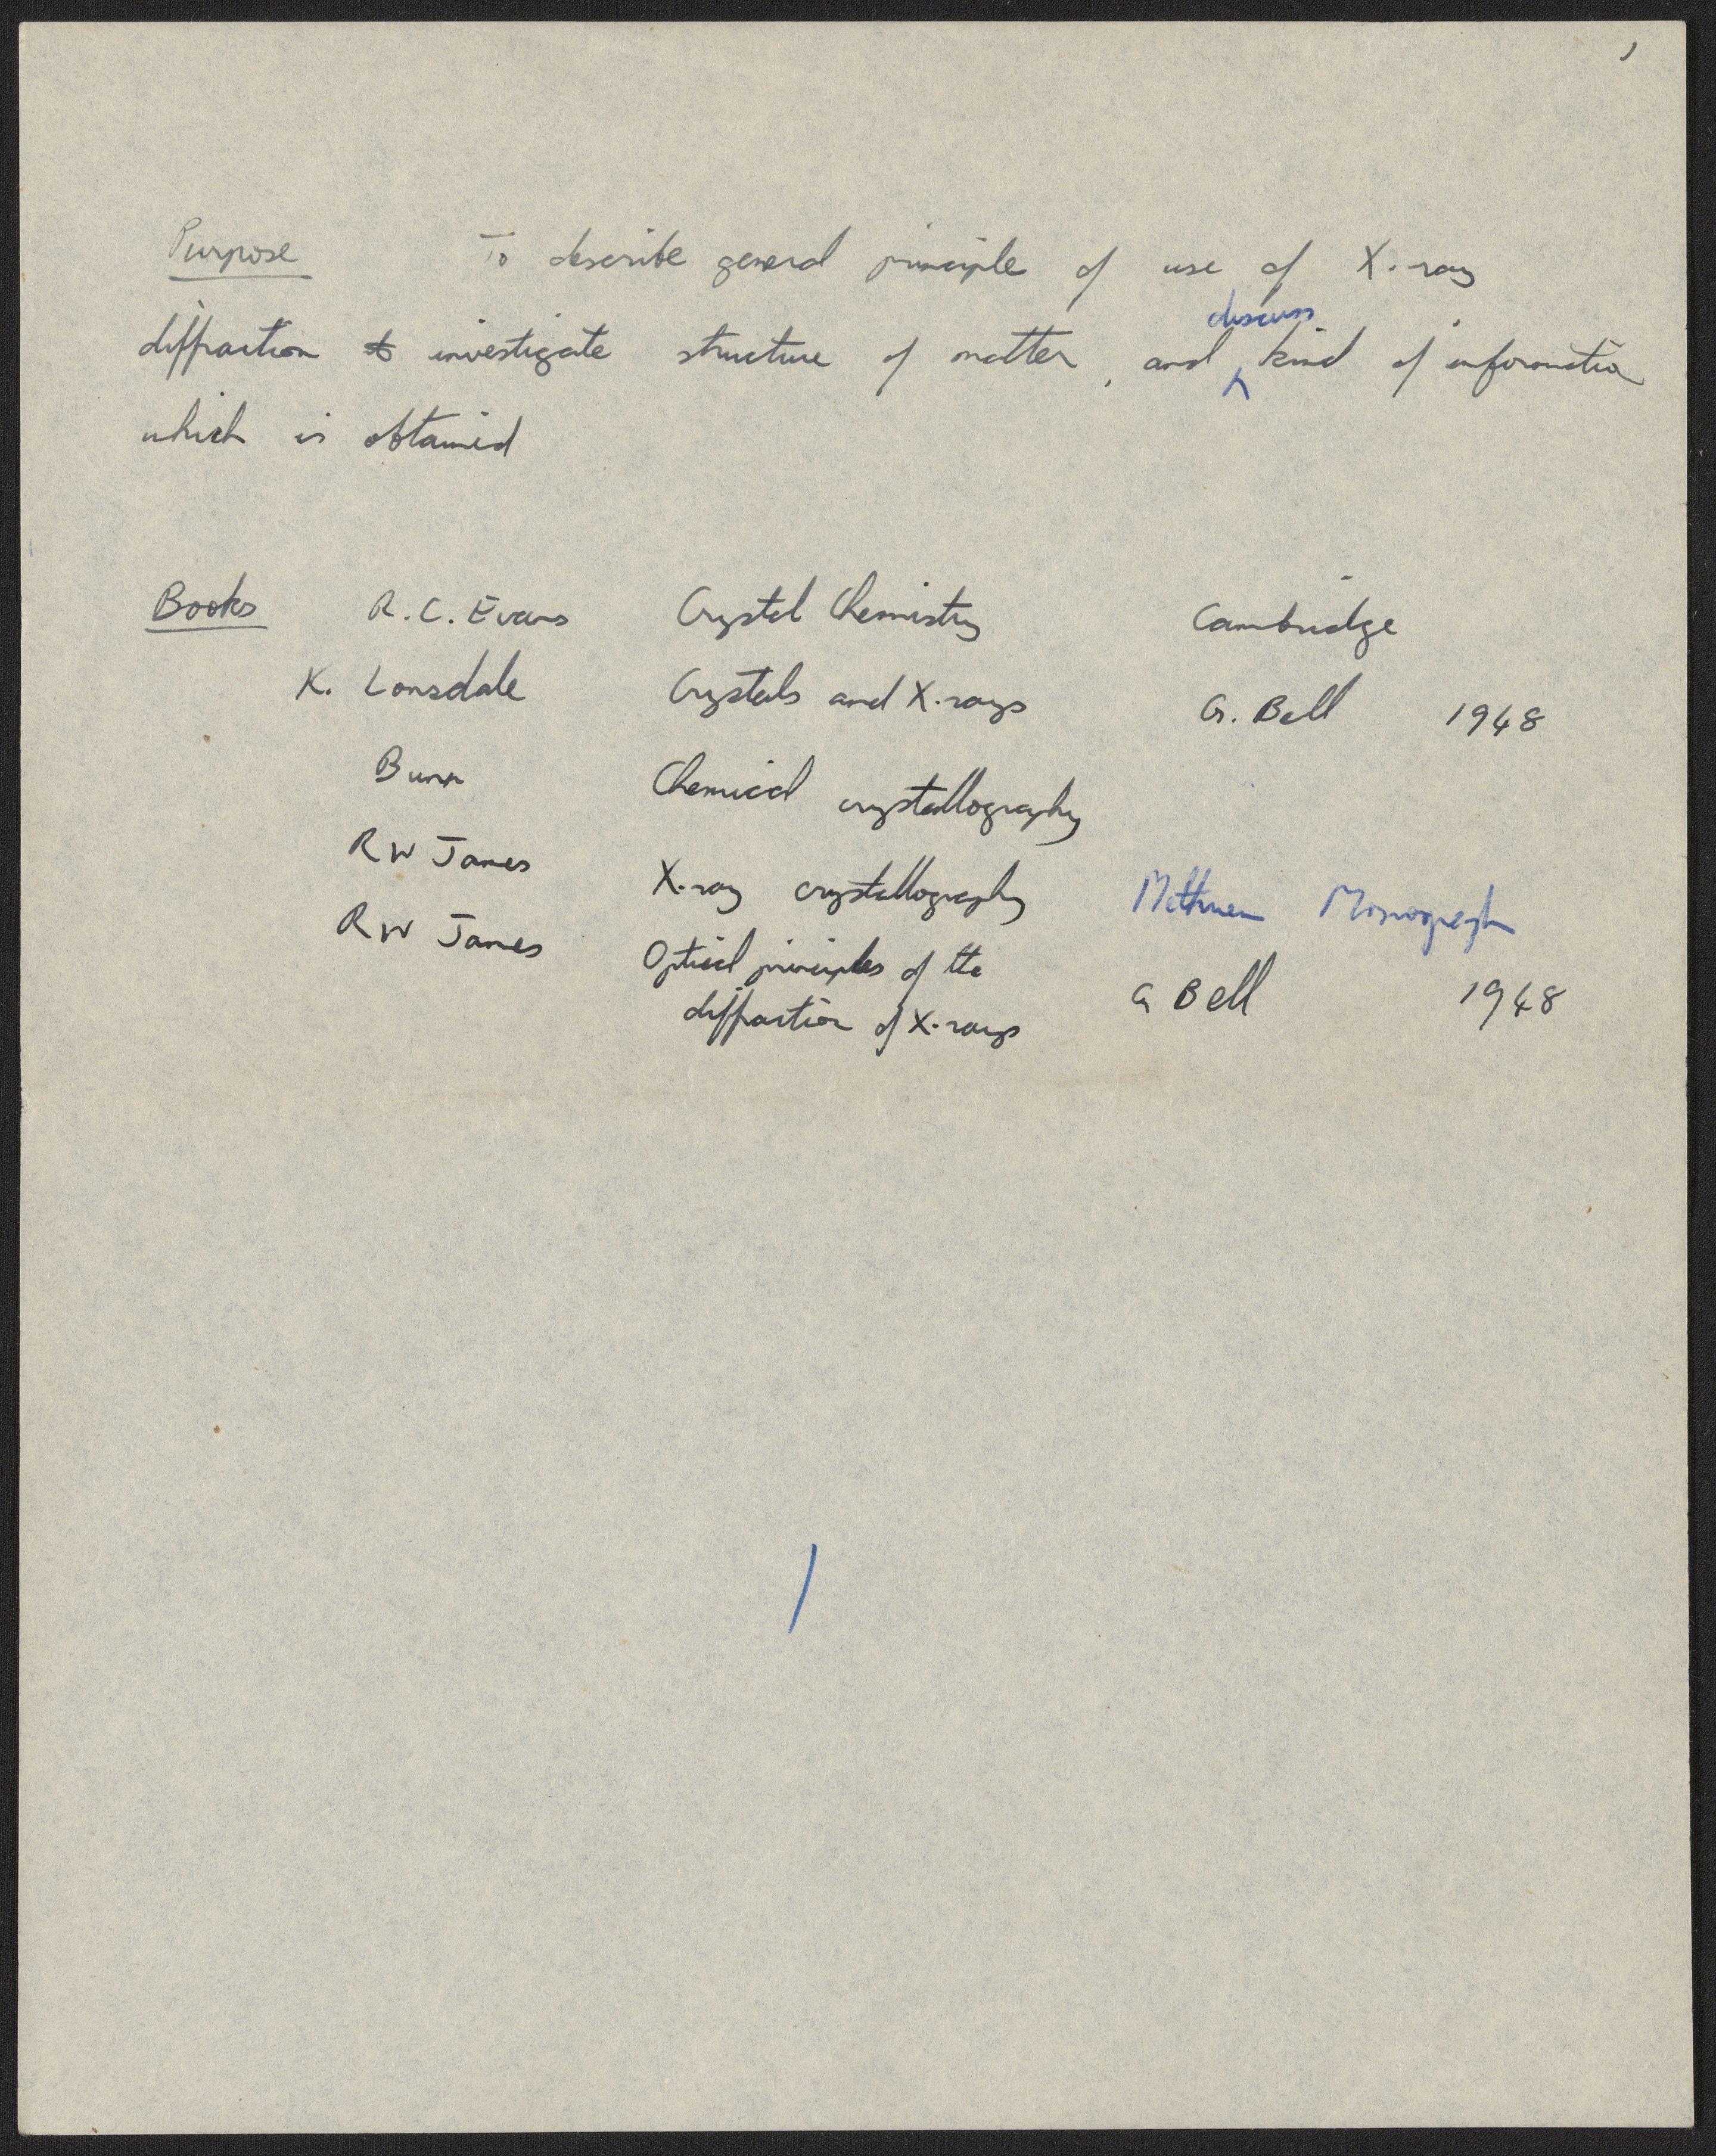 1
Purpose To describe general principle of use of X-ray
discuss
diffraction to investigate structure of matter, and kind of information
which is obtained
Books R.C. Evans Crystal Chemistry Cambridge
K. Lonsdale Crystals and X-rays G. Bell 1948
Bunn Chemical crystallography
RW James X-ray crystallography Methuen Monograph
RW James Optical principles of the
diffraction of X-rays G Bell 1948